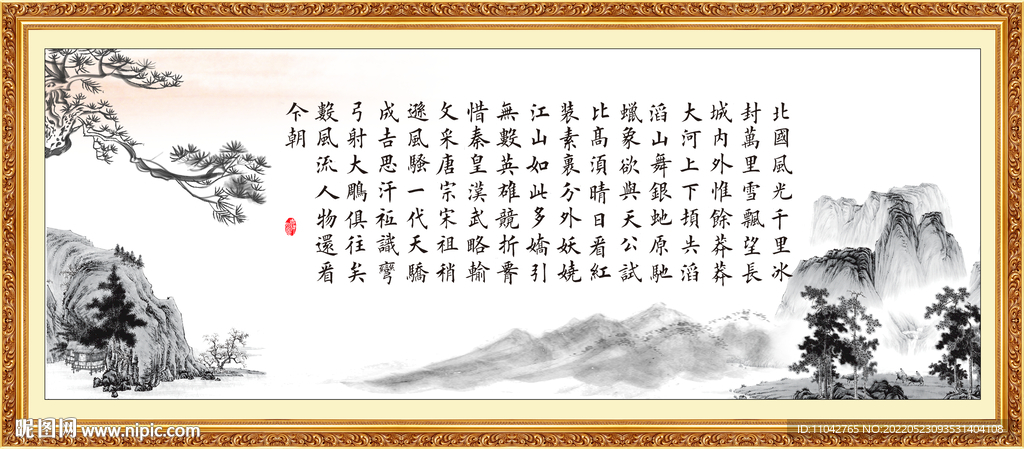 北國風光千里冰
封萬里雪飄望長
城内外惟餘莽莽
大河上下頓失滔
滔山舞銀虵原馳
蠟象欲與天公試
比髙須晴日看紅
装素裹分外妖嬈
江山如此多嬌引
無數英雄競折腰
惜秦皇漢武略輸
文采唐宗宋祖稍
遜風騷一代天驕
成吉思汗祗識彎
弓射大鵰俱往矣
數風流人物還看
今朝
昵图网 www.nipic.com
ID:11042765 NO.20220523093531404108